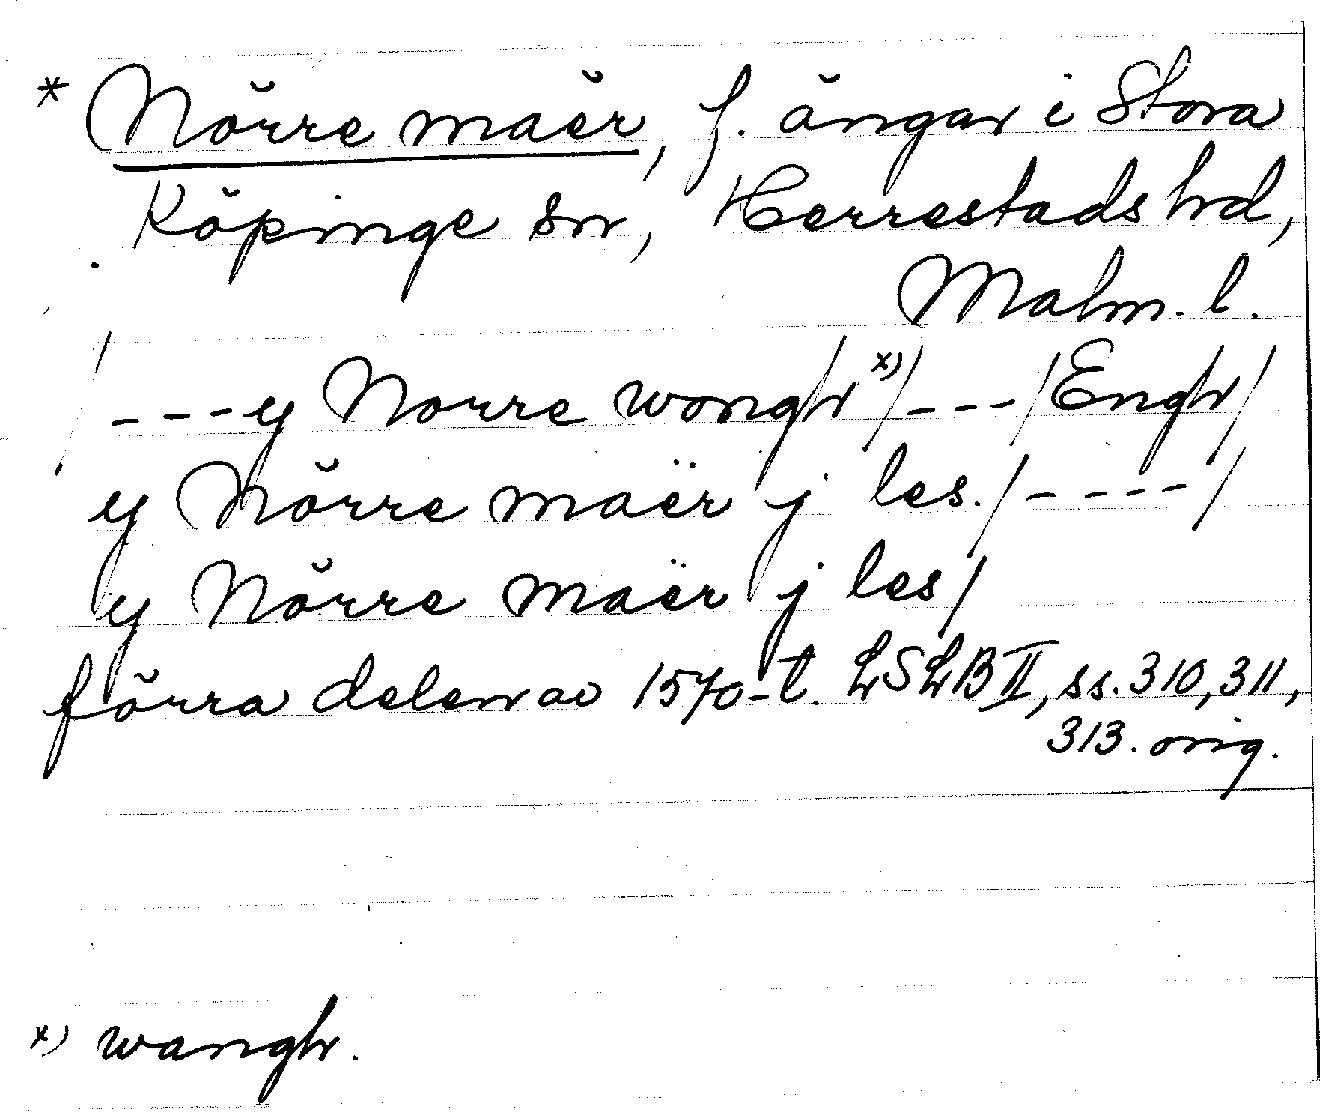 * Nörre maër, f. ängar i Stora
Köpinge sn, Herrestads hd,
Malm. l.
/---y Norre wongh x)/---/Engh/
y Nörre maër j les./----/
y Nörre maër j les/
förra delen av 1570-t. LSLB II, ss. 310, 311,
313. orig.
x) wangh.